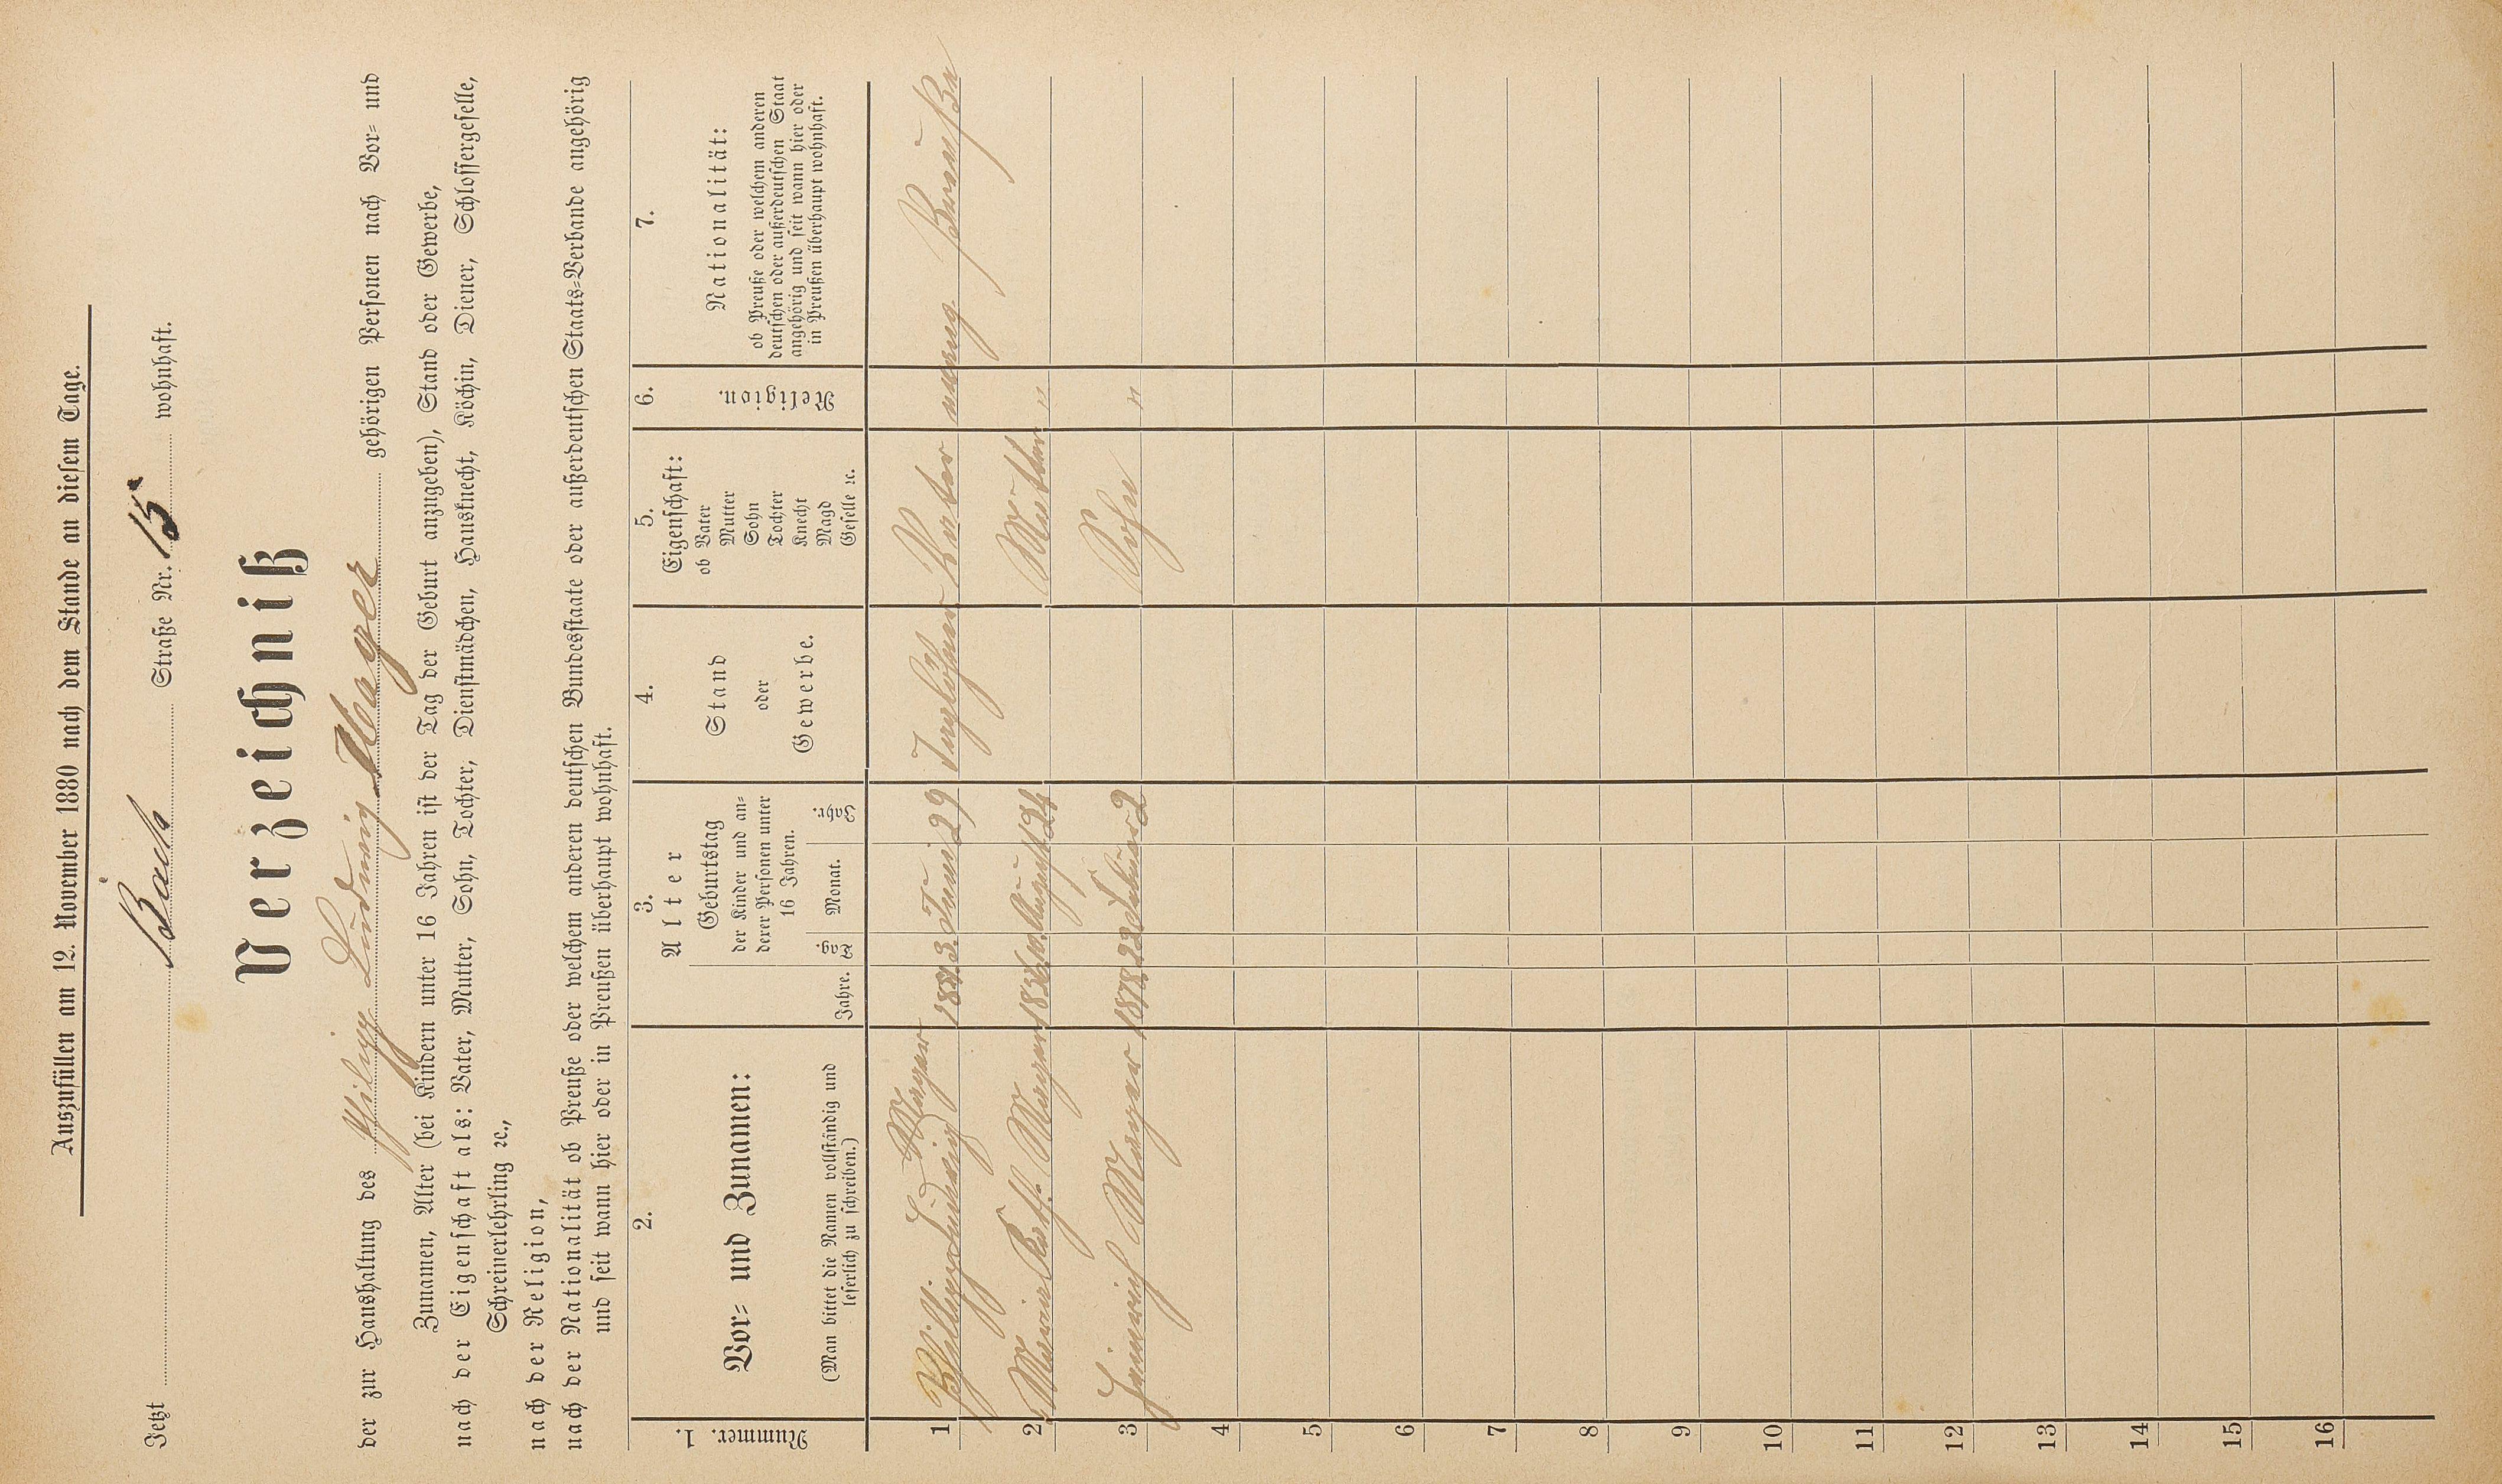 Auszufüllen am 12. November 1880 nach dem Stande an diesem Tage.
Jetzt Bach Straße Nr. 15 wohnhaft.
Verzeichniß
der zur Haushaltung des Philipp Ludwig Mager gehörigen Personen nach Vor- und
Zunamen, Alter (bei Kindern unter 16 Jahren ist der Tag der Geburt anzugeben), Stand oder Gewerbe,
nach der Eigenschaft als: Vater, Mutter, Sohn, Tochter, Dienstmädchen, Hausknecht, Köchin, Diener, Schlossergeselle,
Schreinerlehrling ꝛc.,
nach der Religion,
nach der Nationalität ob Preuße oder welchem anderen deutschen Bundesstaate oder außerdeutschen Staats-Verbande angehörig
und seit wann hier oder in Preußen überhaupt wohnhaft.
1.
Nummer.
2.
Vor- und Zunamen:
(Man bittet die Namen vollständig und
leserlich zu schreiben.)
3.
Alter
Geburtstag
der Kinder und an-
derer Personen unter
16 Jahren.
Jahre. Tag. Monat. Jahr.
4.
Stand
oder
Gewerbe.
5.
Eigenschaft:
ob Vater
Mutter
Sohn
Tochter
Knecht
Magd
Geselle ꝛc.
6.
Religion.
7.
Nationalität:
ob Preuße oder welchem anderen
deutschen oder außerdeutschen Staat
angehörig und seit wann hier oder
in Preußen überhaupt wohnhaft.
1 Philipp Ludwig Mager 3. Juni 29 Taglöhner Vater evang.
2 Maria Kath. Mager 10. August 24 Mutter "
3 Heinrich Mager 1878 23 Februar 2 Sohn "
4
5
6
7
8
9
10
11
12
13
14
15
16